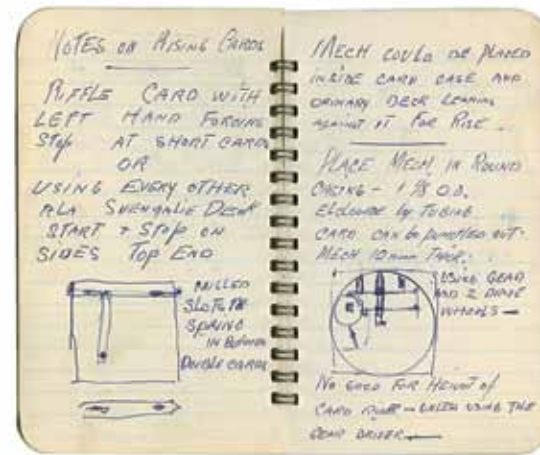 NOTES ON RISING CARDS
RIFFLE CARD WITH
LEFT HAND FORCING
STOP AT SHORT CARDS
OR
USING EVERY OTHER
ALA SVENGALIE DECK
START + STOP ON
SIDES TOP END
MILLED
SLOTS
SPRING
IN BETWEEN
DOUBLE CARDS
MECH COULD BE PLACED
INSIDE CARD CASE AND
ORDINARY DECK LEANING
AGAINST IT FOR RISE.
PLACE MECH IN ROUND
CASING - 1 7/8 O.D.
ENCLOSURE by TUBING
CARD CAN BE PUNCHED OUT.
MECH 10mm THICK.
USING GEAR
AND 2 DRIVE
WHEELS
NO GOOD FOR HEIGHT of
CARD RISER - UNLESS USING THE
GEAR DRIVER